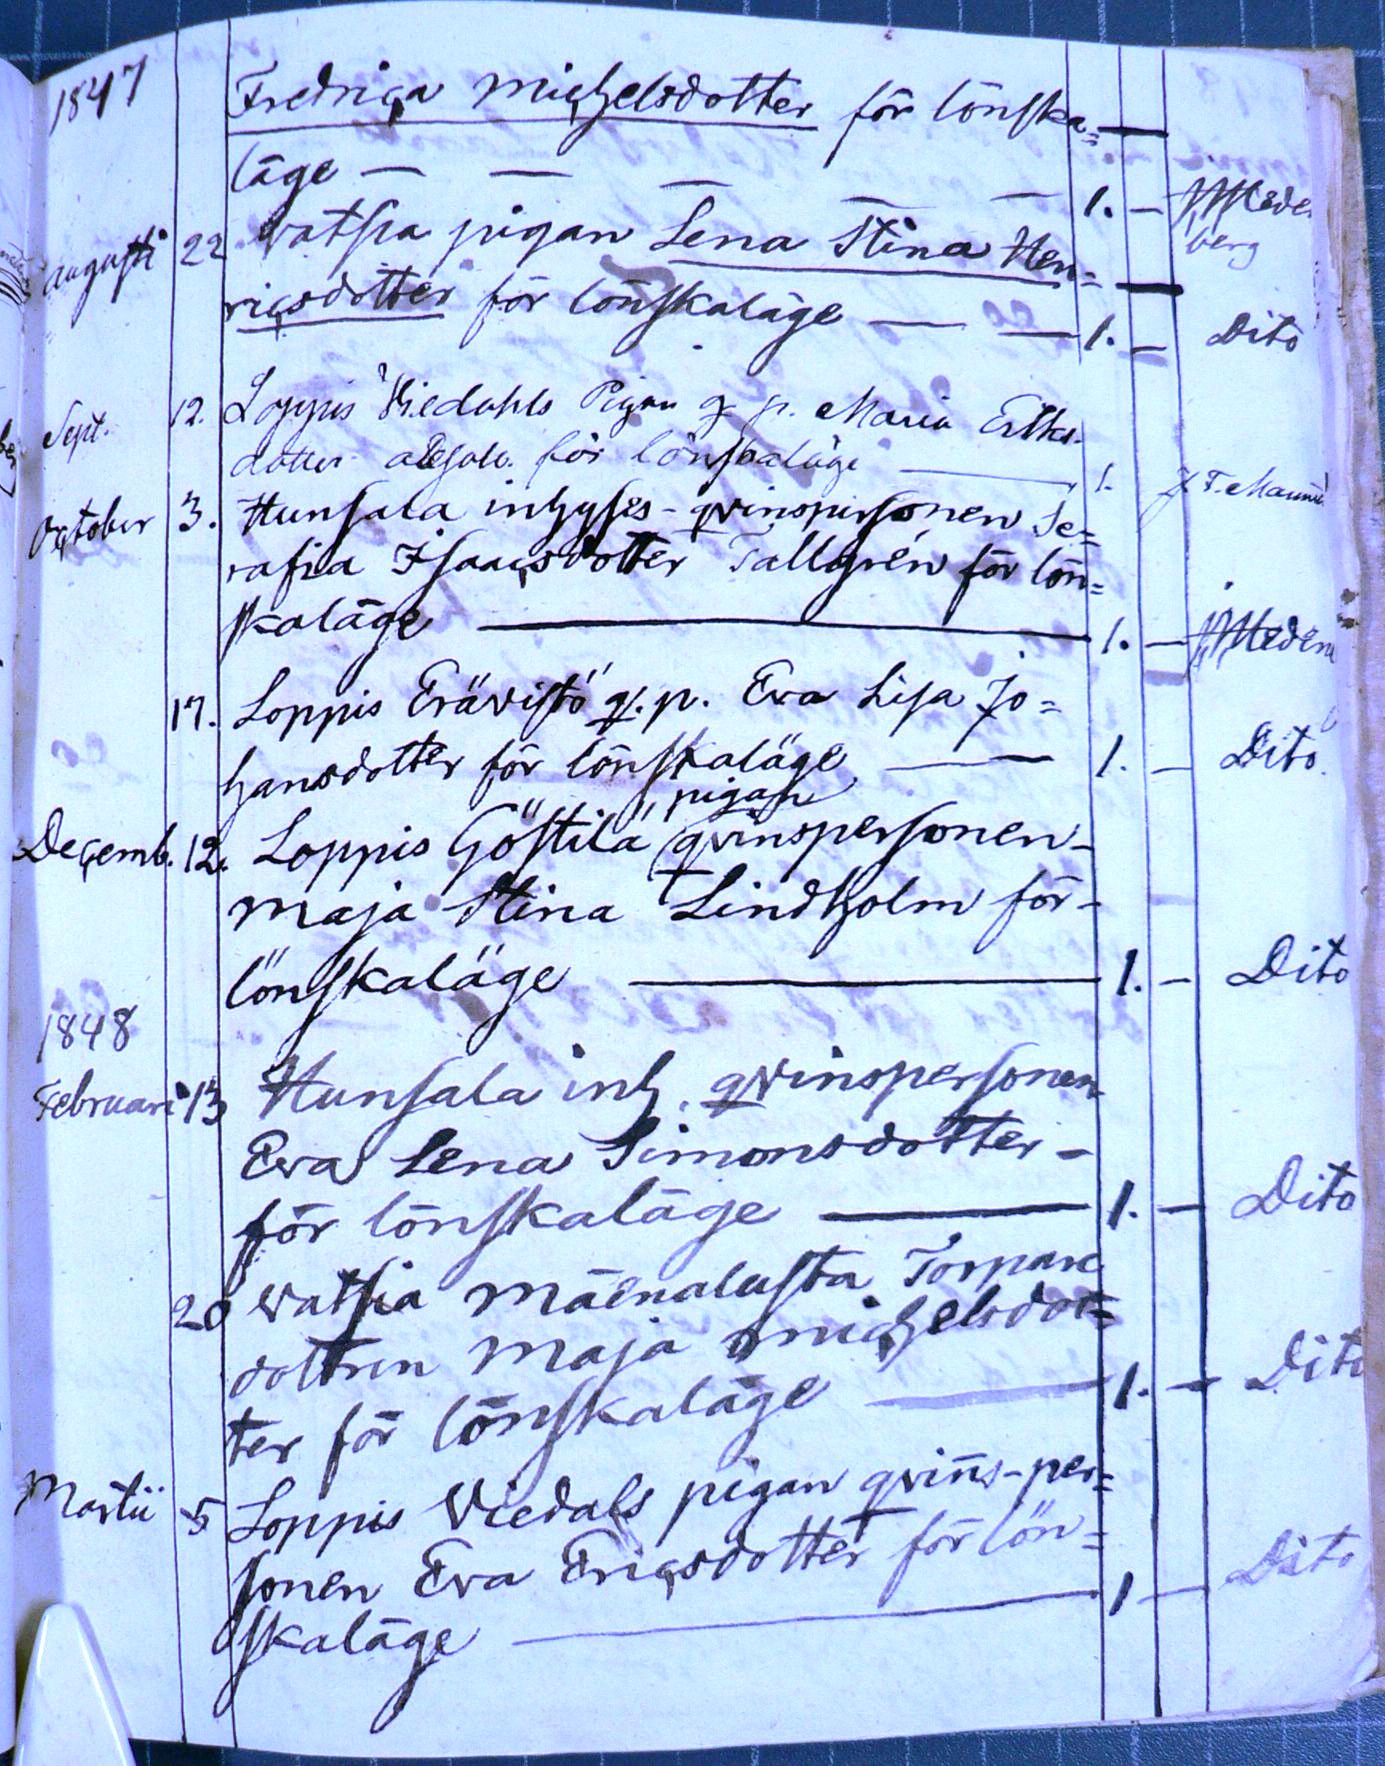 1847 Fredrica Michelsdotter för lönska=
läge — — — — — 1. — Meder
berg
Augusti 22 Watsia pigan Lena Stina Hen=
ricsdotter för lönskaläge — — 1. — Dito
Sept. 12. Loppis Wiedahls Pigan q. p. Maria Eriks-
dotter för lönskaläge — 1.
October 3. Hunsala inhyses-qvinspersonen Se=
rafia Isaacsdotter Tallgrén för lön=
skaläge — 1. —
17. Loppis Erävistö q. p. Eva Lisa Jo=
hansdotter för lönskaläge — — 1. — Dito
pigan
Decemb. 12. Loppis Göstilä qvinspersonen-
Maja Stina Lindholm för-
lönskaläge — 1. — Dito
1848
Februari 13 Hunsala inh. qvinspersonen
Eva Lena Simonsdotter-
för lönskaläge — 1. — Dito
20 Watsia Mäenalusta Torpare
dottren Maja Michelsdot=
ter för lönskaläge — 1. — Dito
Martii 5 Loppis Viedals pigan qvins-per=
sonen Eva Ericsdotter för lön=
skaläge — 1 — Dito